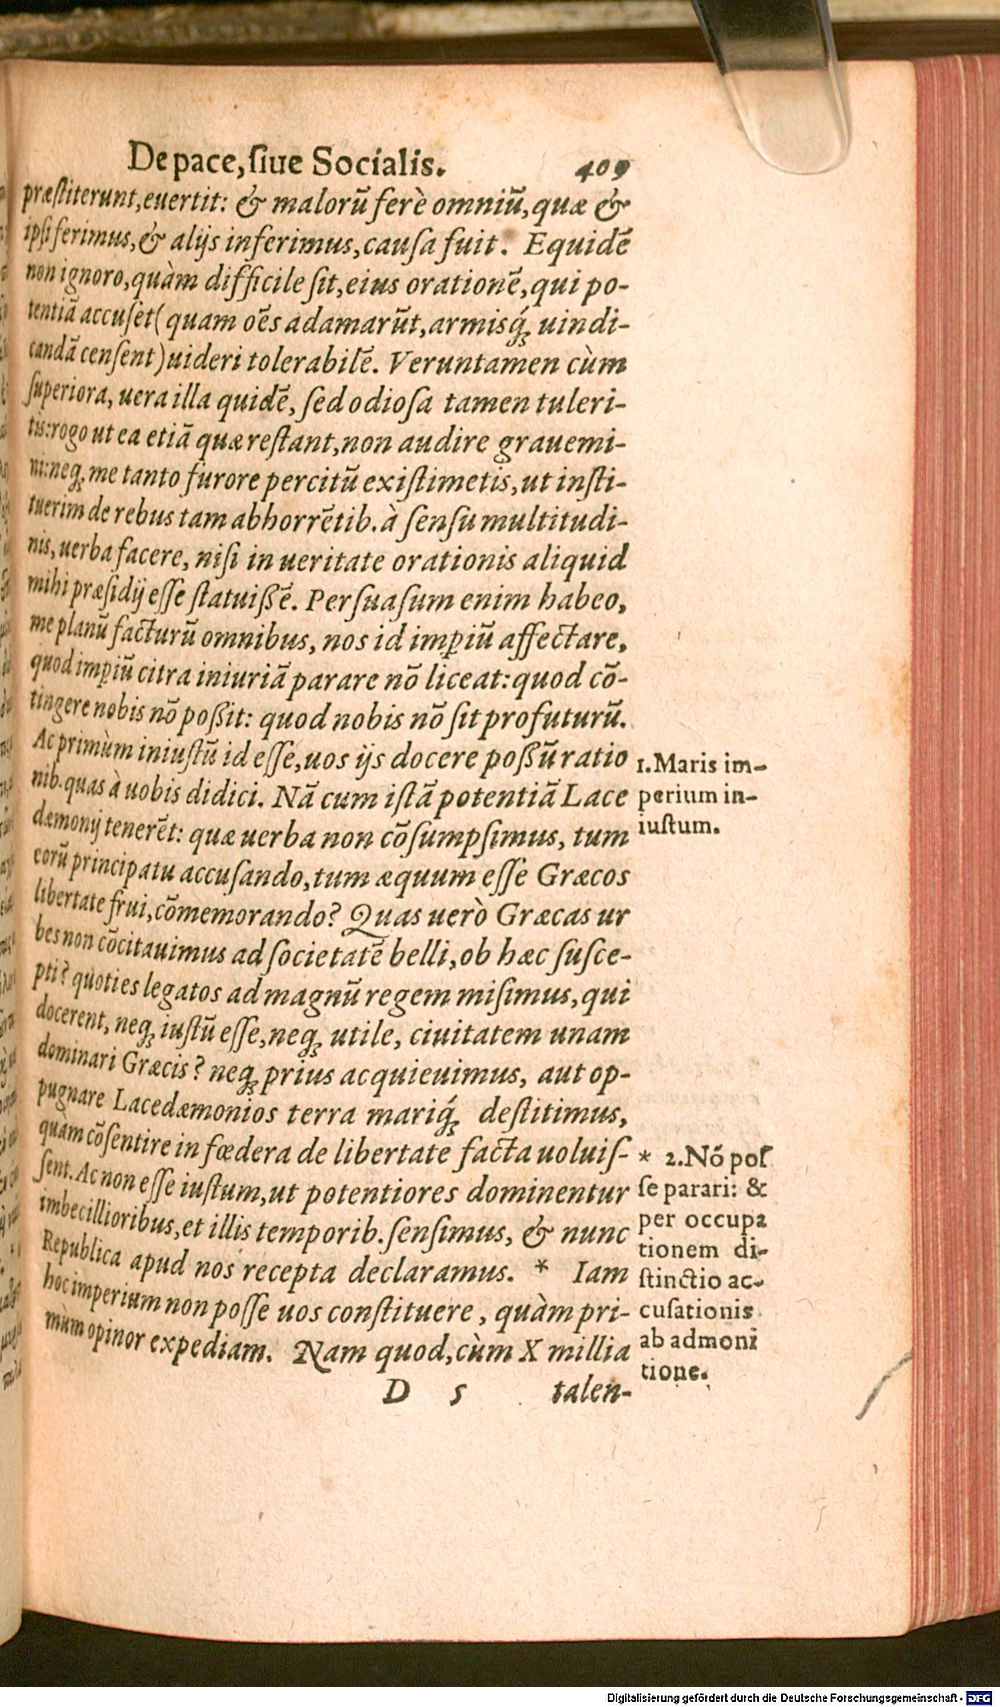 De pace, ſiue Socialis. 409
præſtiterunt, euertit: & malorũ ferè omniũ, quæ &
ipſi ferimus, & alijs inferimus, cauſa fuit. Equidẽ
non ignoro, quàm difficile ſit, eius orationẽ, qui po-
tentiã accuſet (quam oẽs adamarũt, armisq́; uindi-
candã cenſent) uideri tolerabilẽ. Veruntamen cùm
ſuperiora, uera illa quidẽ, ſed odioſa tamen tuleri-
tis: rogo ut ea etiã quæ reſtant, non audire grauemi-
ni: neq; me tanto furore percitũ exiſtimetis, ut inſti-
tuerim de rebus tam abhorrẽtib. à ſenſu multitudi-
nis, uerba facere, niſi in ueritate orationis aliquid
mihi præſidij eſſe ſtatuißẽ. Perſuaſum enim habeo,
me planũ facturũ omnibus, nos id imꝑiũ affectare,
quod imꝑiũ citra iniuriã parare nõ liceat: quod cõ-
tingere nobis nõ poßit: quod nobis nõ ſit profuturũ.
Ac primùm iniuſtũ id eſſe, uos ijs docere poßũ ratio
nib. quas à uobis didici. Nã cum iſtã potentiã Lace
dæmonij tenerẽt: quæ uerba non cõſumpſimus, tum
eorũ principatu accuſando, tum æquum eſſe Græcos
libertate frui, cõmemorando? Quas uerò Græcas ur
bes non cõcitauimus ad ſocietatẽ belli, ob hæc ſuſce-
pti? quoties legatos ad magnũ regem miſimus, qui
docerent, neq; iuſtũ eſſe, neq; utile, ciuitatem unam
dominari Græcis? neq; prius acquieuimus, aut op-
pugnare Lacedæmonios terra mariq́; deſtitimus,
quàm cõſentire in fœdera de libertate facta uoluiſ-
ſent. Ac non eſſe iuſtum, ut potentiores dominentur
imbecillioribus, et illis temporib. ſenſimus, & nunc
Republica apud nos recepta declaramus. * Iam
hoc imperium non poſſe uos conſtituere, quàm pri-
mùm opinor expediam. Nam quod, cùm X millia
D 5 talen-
1. Maris im-
perium in-
iuſtum.
* 2. Nõ poſ
ſe parari: &
per occupa
tionem di-
ſtinctio ac-
cuſationis
ab admoni
tione.
Digitalisierung gefördert durch die Deutsche Forschungsgemeinschaft - DFG